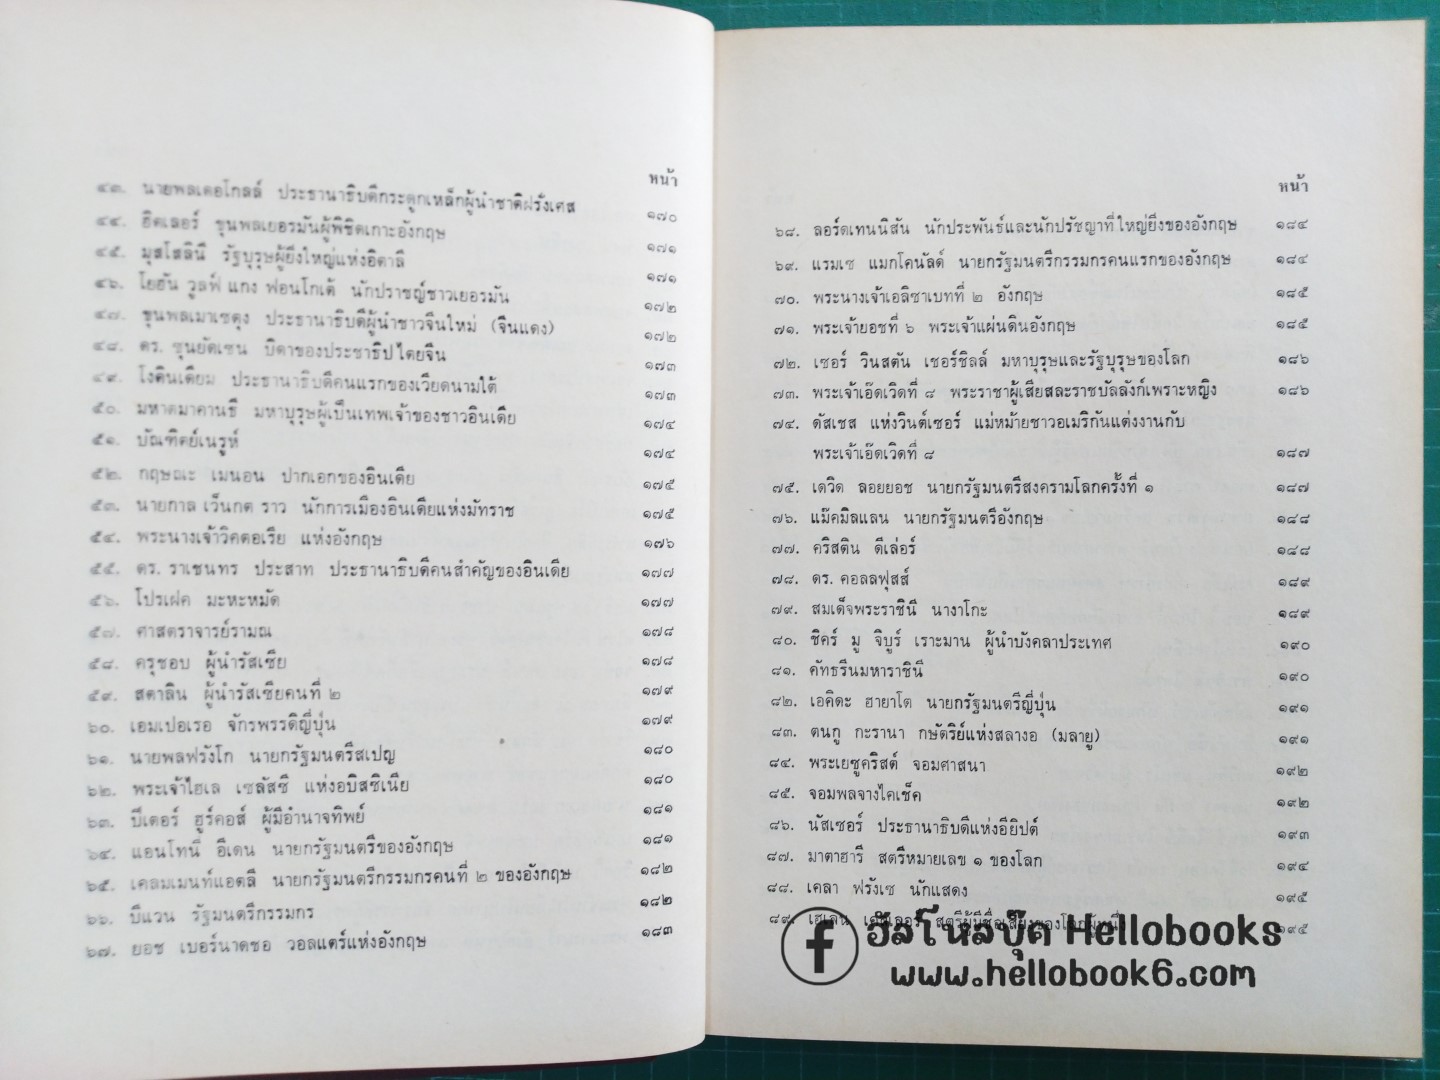 หน้า
๔๓. นายพลเดอโกลล์ ประธานาธิบดีกระดูกเหล็กผู้นำชาติฝรั่งเศส ๑๗๐
๔๔. ฮิตเลอร์ ขุนพลเยอรมันผู้พิชิตเกาะอังกฤษ ๑๗๑
๔๕. มุสโสลินี รัฐบุรุษผู้ยิ่งใหญ่แห่งอิตาลี ๑๗๑
๔๖. โยฮัน วูลฟ์ แกง ฟอนโกเต้ นักปราชญ์ชาวเยอรมัน ๑๗๒
๔๗. ขุนพลเมาเซตุง ประธานาธิบดีผู้นำชาวจีนใหม่ (จีนแดง) ๑๗๒
๔๘. ดร. ซุนยัดเซน บิดาของประชาธิปไตยจีน ๑๗๓
๔๙. โงดินเดียม ประธานาธิบดีคนแรกของเวียดนามใต้ ๑๗๓
๕๐. มหาตมาคานธี มหาบุรุษผู้เป็นเทพเจ้าของชาวอินเดีย ๑๗๔
๕๑. บัณฑิตย์เนรูห์ ๑๗๔
๕๒. กฤษณะ เมนอน ปากเอกของอินเดีย ๑๗๕
๕๓. นายกาล เว็นกต ราว นักการเมืองอินเดียแห่งมัทราช ๑๗๕
๕๔. พระนางเจ้าวิคตอเรีย แห่งอังกฤษ ๑๗๖
๕๕. ดร. ราเชนทร ประสาท ประธานาธิบดีคนสำคัญของอินเดีย ๑๗๗
๕๖. โปรเฝค มะหะหมัด ๑๗๗
๕๗. ศาสตราจารย์รามณ ๑๗๘
๕๘. ครุชอบ ผู้นำรัสเซีย ๑๗๘
๕๙. สตาลิน ผู้นำรัสเซียคนที่ ๒ ๑๗๙
๖๐. เอมเปอเรอ จักรพรรดิญี่ปุ่น ๑๗๙
๖๑. นายพลฟรังโก นายกรัฐมนตรีสเปญ ๑๘๐
๖๒. พระเจ้าไฮเล เซลัสซี แห่งอบิสซิเนีย ๑๘๐
๖๓. ปีเตอร์ ฮูร์คอส์ ผู้มีอำนาจทิพย์ ๑๘๑
๖๔. แอนโทนี่ อีเดน นายกรัฐมนตรีของอังกฤษ ๑๘๑
๖๕. เคลมเมนท์แอตลี นายกรัฐมนตรีกรรมกรคนที่ ๒ ของอังกฤษ ๑๘๒
๖๖. บีแวน รัฐมนตรีกรรมกร ๑๘๒
๖๗. ยอช เบอร์นาดชอ วอลแตร์แห่งอังกฤษ ๑๘๓
หน้า
๖๘. ลอร์ดเทนนิสัน นักประพันธ์และนักปรัชญาที่ใหญ่ยิ่งของอังกฤษ ๑๘๔
๖๙. แรมเซ แมกโดนัลด์ นายกรัฐมนตรีกรรมกรคนแรกของอังกฤษ ๑๘๔
๗๐. พระนางเจ้าเอลิซาเบทที่ ๒ อังกฤษ ๑๘๕
๗๑. พระเจ้ายอชที่ ๖ พระเจ้าแผ่นดินอังกฤษ ๑๘๕
๗๒. เซอร์ วินสตัน เชอร์ชิลล์ มหาบุรุษและรัฐบุรุษของโลก ๑๘๖
๗๓. พระเจ้าเอ๊ดเวิดที่ ๘ พระราชาผู้เสียสละราชบัลลังก์เพราะหญิง ๑๘๖
๗๔. ดัสเชส แห่งวินด์เซอร์ แม่หม้ายชาวอเมริกันแต่งงานกับ
พระเจ้าเอ๊ดเวิดที่ ๘ ๑๘๗
๗๕. เดวิด ลอยยอช นายกรัฐมนตรีสงครามโลกครั้งที่ ๑ ๑๘๗
๗๖. แม๊คมิลแลน นายกรัฐมนตรีอังกฤษ ๑๘๘
๗๗. คริสติน ดีเล่อร์ ๑๘๘
๗๘. ดร. คอลลฟุสส์ ๑๘๙
๗๙. สมเด็จพระราชินี นางาโกะ ๑๘๙
๘๐. ชิคร์ มู จิบูร์ เราะมาน ผู้นำบังคลาประเทศ ๑๙๐
๘๑. คัทธรีนมหาราชินี ๑๙๐
๘๒. เอคิดะ ฮายาโต นายกรัฐมนตรีญี่ปุ่น ๑๙๑
๘๓. ตนกู กะรานา กษัตริย์แห่งสลางอ (มลายู) ๑๙๑
๘๔. พระเยซูคริสต์ จอมศาสนา ๑๙๒
๘๕. จอมพลจางไคเช็ค ๑๙๒
๘๖. นัสเซอร์ ประธานาธิบดีแห่งอียิปต์ ๑๙๓
๘๗. มาตาฮารี สตรีหมายเลข ๑ ของโลก ๑๙๔
๘๘. เคลา ฟรังเซ นักแสดง ๑๙๕
๘๙. เฮเลน เคลเลอร์ สตรีผู้มีชื่อเสียงของโลกผู้หนึ่ง ๑๙๕
f ฮัลโหลบุ๊ค Hellobooks
www.hellobook6.com